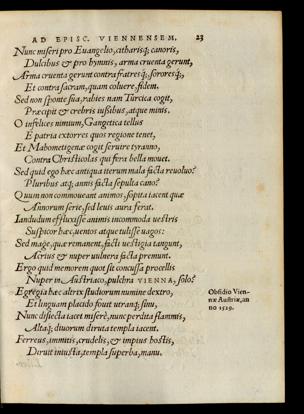 AD EPISC. VIENNENSEM. 23
Nunc miseri pro Euangelio, citharisq; canoris,
Dulcibus & pro hymnis, arma cruenta gerunt,
Arma cruenta gerunt contra fratresq;, sororesq;,
Et contra sacram, quam coluere, fidem.
Sed non sponte sua, rabies nam Turcica cogit,
Præcipit & crebris iussibus, atque minis.
O infelices nimium, Gangetica tellus
E patria extorres quos regione tenet,
Et Mahometigenæ cogit seruire tyranno,
Contra Christicolas qui fera bella mouet.
Sed quid ego hæc antiqua iterum mala facta reuoluo?
Pluribus atq; annis facta sepulta cano?
Quum non commoueant animos, sopita iacent quæ
Annorum serie, sed leuis aura ferat.
Iandudum effluxisse animis incommoda uestris
Suspicor hæc, uentos atque tulisse uagos:
Sed mage, quæ remanent, facti uestigia tangunt,
Acrius & nuper uulnera facta premunt.
Ergo quid memorem quot sit concussa procellis
Nuper in Austriaco, pulchra VIENNA, solo?
Egregia hæc altrix studiorum numine dextro,
Et linguam placido fouit utranq; sinu,
Nunc disiecta iacet miserè, nunc perdita flammis,
Altaq; diuorum diruta templa iacent.
Ferreus, immitis, crudelis, & impius hostis,
Diruit iniusta, templa superba, manu.
Obsidio Vien-
næ Austriæ, an
no 1529.